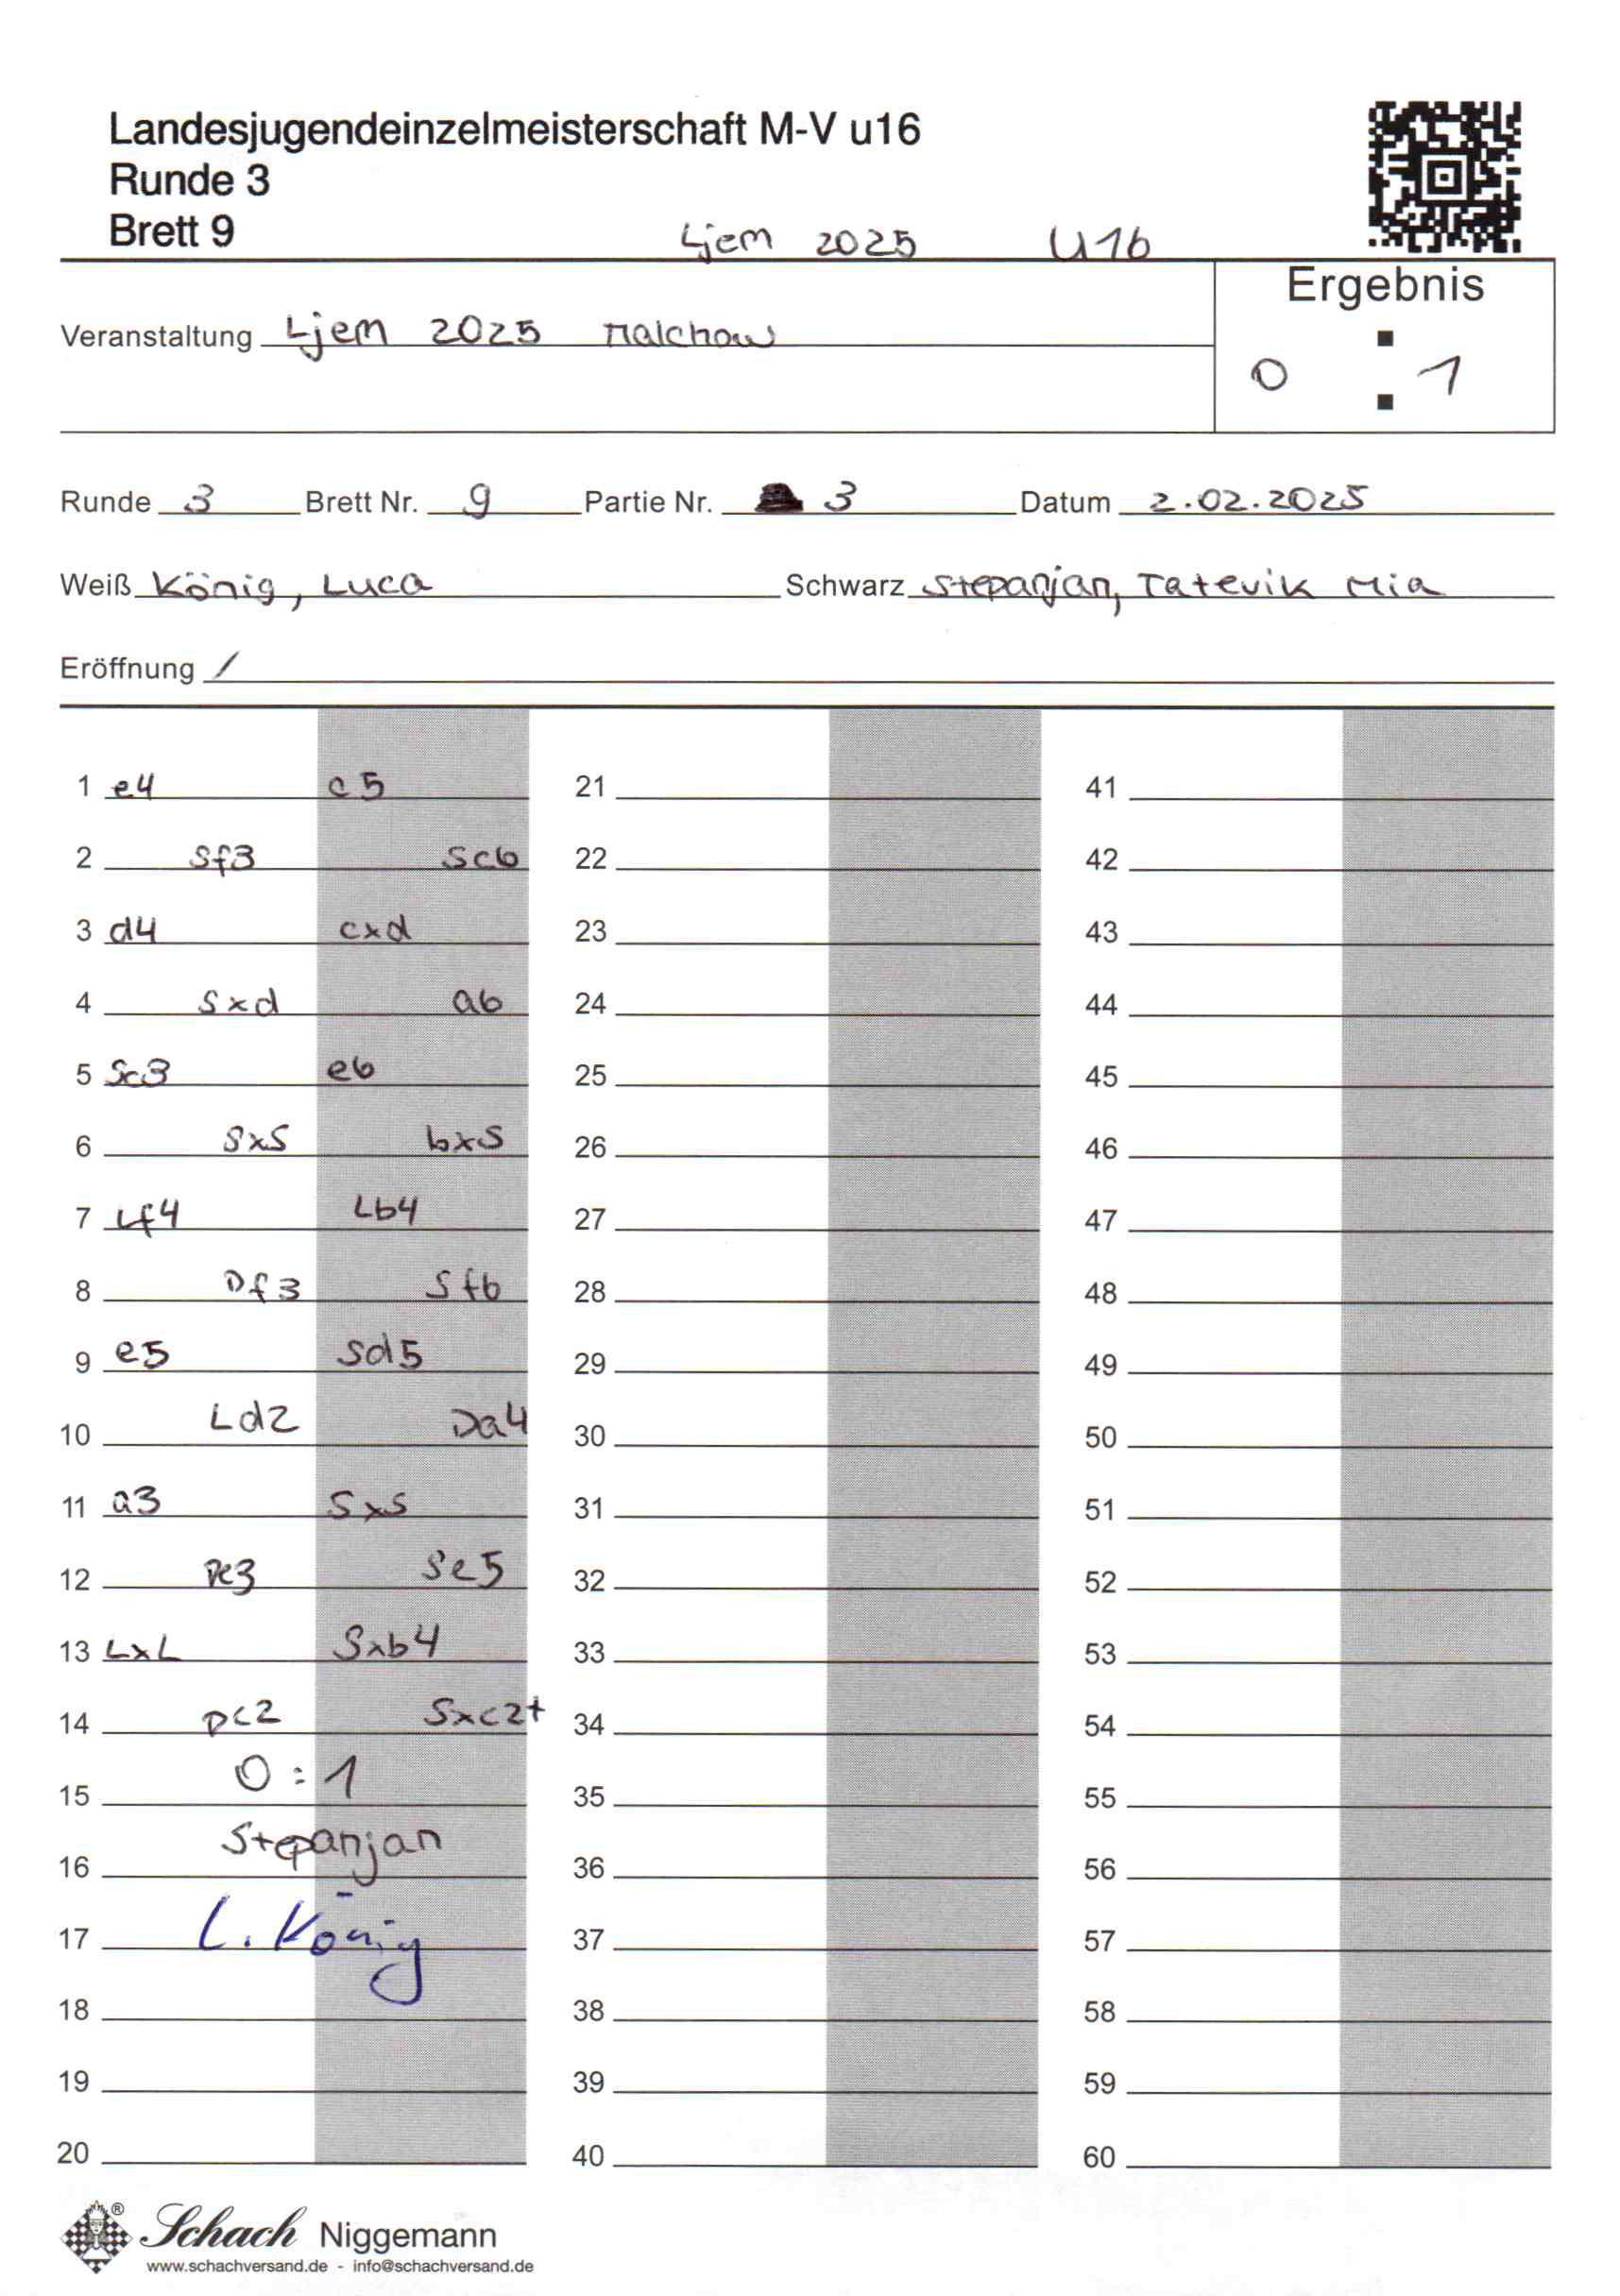 Landesjugendeinzelmeisterschaft M-V u16
Runde 3
Brett 9
Ljem 2025 U16
Ergebnis
0 : 1
Veranstaltung Ljem 2025 Malchow
Runde 3 Brett Nr. 9 Partie Nr. 3 Datum 2.02.2025
Weiß König, Luca Schwarz Stepanjan, Tatevik Mia
Eröffnung /
1 e4 c5 21 41
2 Sf3 Sc6 22 42
3 d4 cxd 23 43
4 Sxd a6 24 44
5 Sc3 e6 25 45
6 SxS bxS 26 46
7 Lf4 Lb4 27 47
8 Df3 Sf6 28 48
9 e5 Sd5 29 49
10 Ld2 Da4 30 50
11 a3 SxS 31 51
12 Se5 32 52
13 LxL Sxb4 33 53
14 Dc2 Sxc2+ 34 54
0 : 1
15 35 55
Stepanjan
16 36 56
L. König
17 37 57
18 38 58
19 39 59
20 40 60
Schach Niggemann
www.schachversand.de - info@schachversand.de